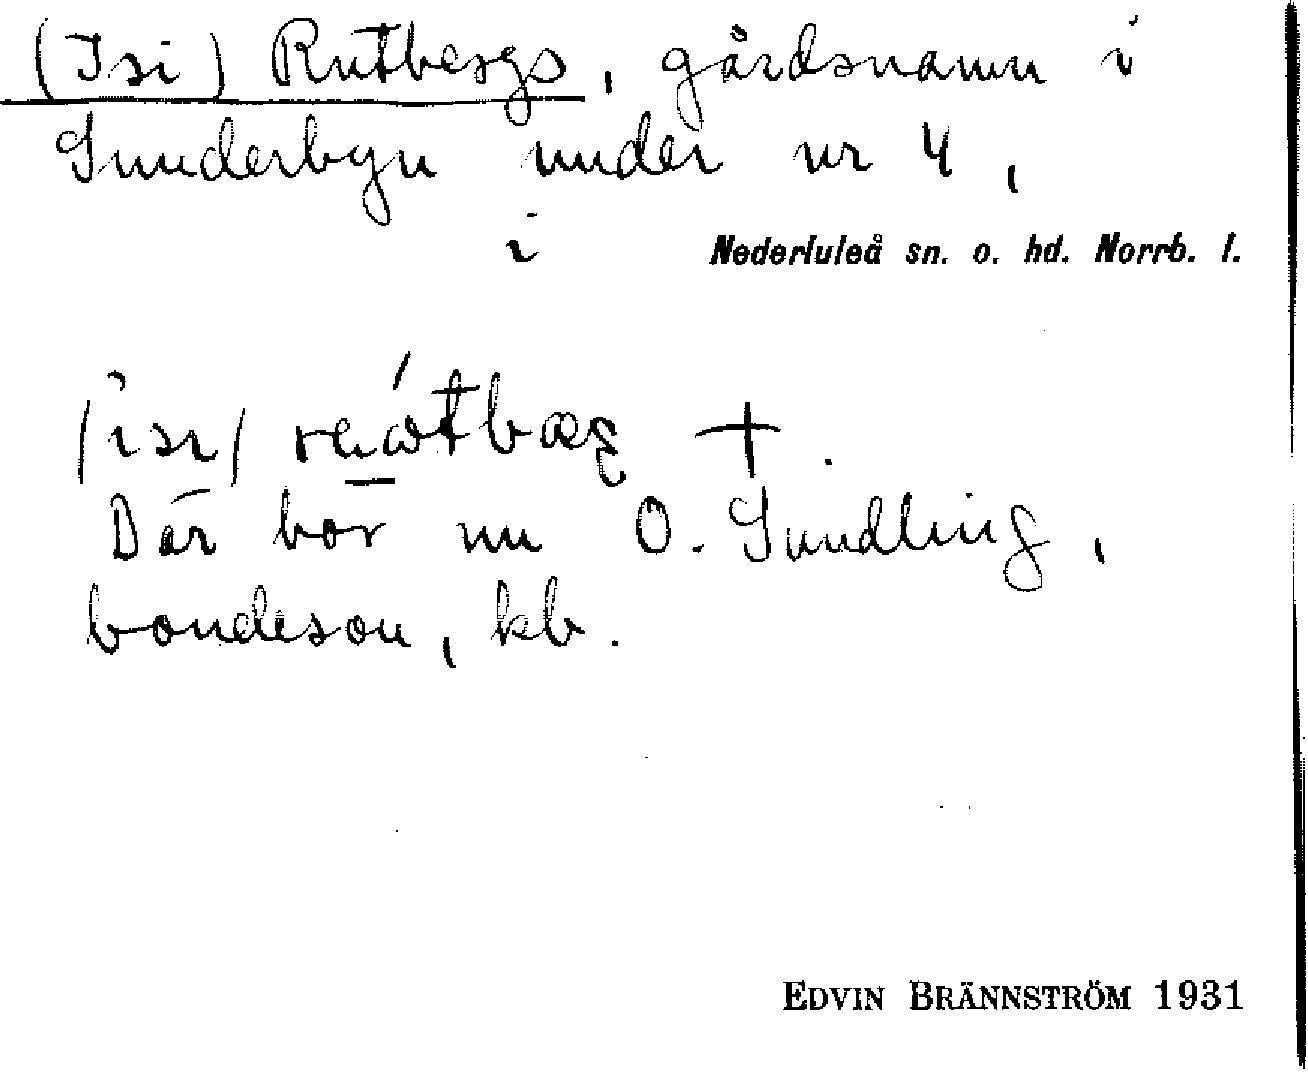 (Isi) Rutbergs, gårdsnamn i
Sunderbyn under nr 4,
i Nederluleå sn. o. hd. Norrb. l.
+.
Där bor nu O. Sundling,
bondeson, kb.
EDVIN BRÄNNSTRÖM 1931